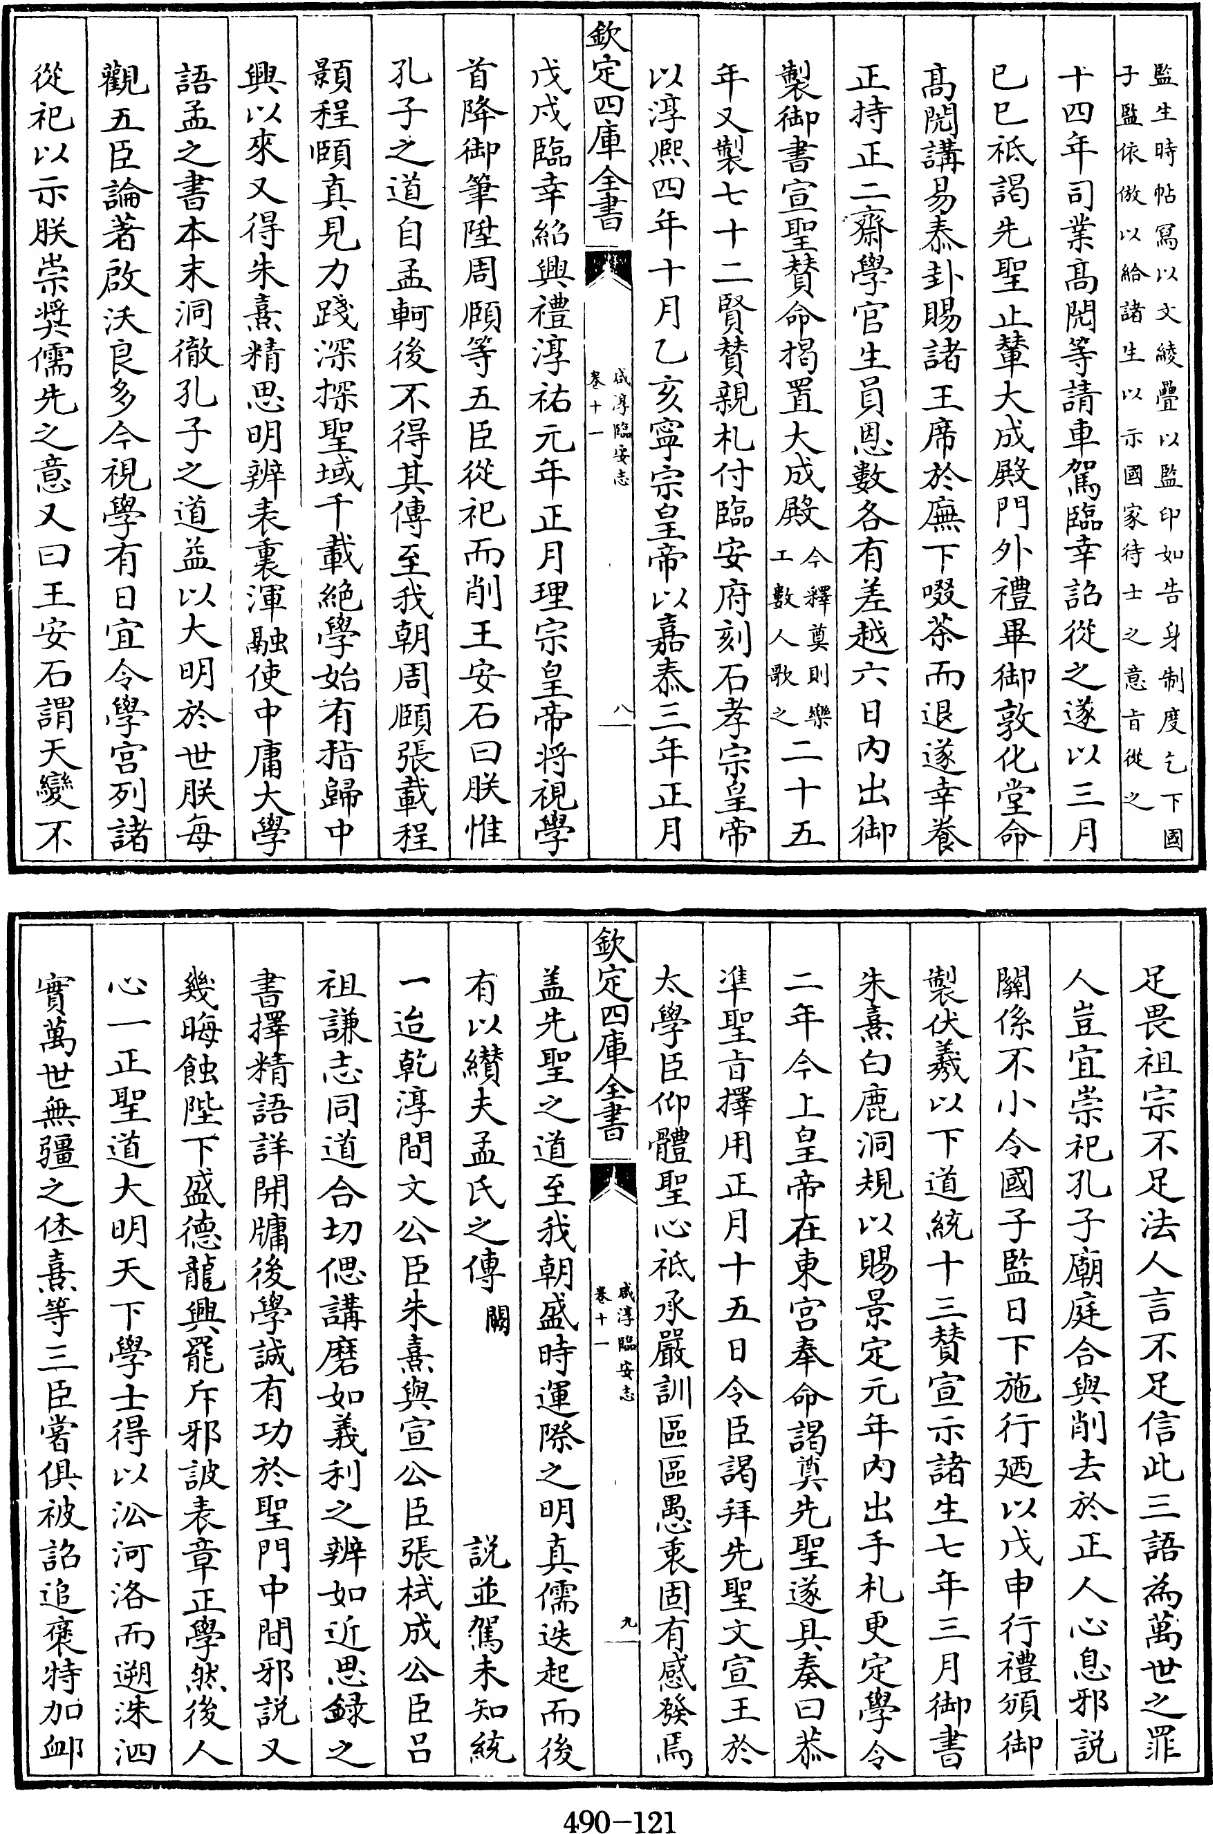 監生時帖寫以文綾疊以監印如告身制度乞下國
子監依倣以給諸生以示國家待士之意㫖從之
十四年司業髙閌等請車駕臨幸詔從之遂以三月
已巳祗謁先聖止輦大成殿門外禮畢御敦化堂命
髙閌講易泰卦賜諸王席於廡下啜茶而退遂幸養
正持正二齋學官生員恩數各有差越六日内出御
製御書宣聖賛命揭置大成殿今釋奠則樂工數人歌之二十五
年又製七十二賢賛親札付臨安府刻石孝宗皇帝
以淳熈四年十月乙亥寧宗皇帝以嘉泰三年正月
欽定四庫全書
咸淳臨安志
卷十一
八
戊戌臨幸紹興禮淳祐元年正月理宗皇帝将視學
首降御筆陞周頤等五臣從祀而削王安石曰朕惟
孔子之道自孟軻後不得其傳至我朝周頤張載程
顥程頤真見力踐深探聖域千載絶學始有指歸中
興以來又得朱熹精思明辨表裏渾融使中庸大學
語孟之書本末洞徹孔子之道益以大明於世朕每
觀五臣論著啟沃良多今視學有日宜令學宫列諸
從祀以示朕崇奬儒先之意又曰王安石謂天變不
足畏祖宗不足法人言不足信此三語為萬世之罪
人豈宜崇祀孔子廟庭合與削去於正人心息邪説
闗係不小令國子監日下施行廼以戊申行禮頒御
製伏羲以下道統十三賛宣示諸生七年三月御書
朱熹白鹿洞規以賜景定元年内出手札更定學令
二年今上皇帝在東宫奉命謁奠先聖遂具奏曰恭
準聖㫖擇用正月十五日令臣謁拜先聖文宣王於
太學臣仰體聖心祗承嚴訓區區愚衷固有感發焉
欽定四庫全書
咸淳臨安志
卷十一
九
盖先聖之道至我朝盛時運際之明真儒迭起而後
有以纉夫孟氏之傳闕説並駕未知統
一迨乾淳間文公臣朱熹與宣公臣張栻成公臣吕
祖謙志同道合切偲講磨如義利之辨如近思録之
書擇精語詳開牖後學誠有功於聖門中間邪説又
幾晦蝕陛下盛徳龍興罷斥邪詖表章正學然後人
心一正聖道大明天下學士得以㳂河洛而遡洙泗
實萬世無疆之休熹等三臣嘗俱被詔追褒特加䘏
490-121